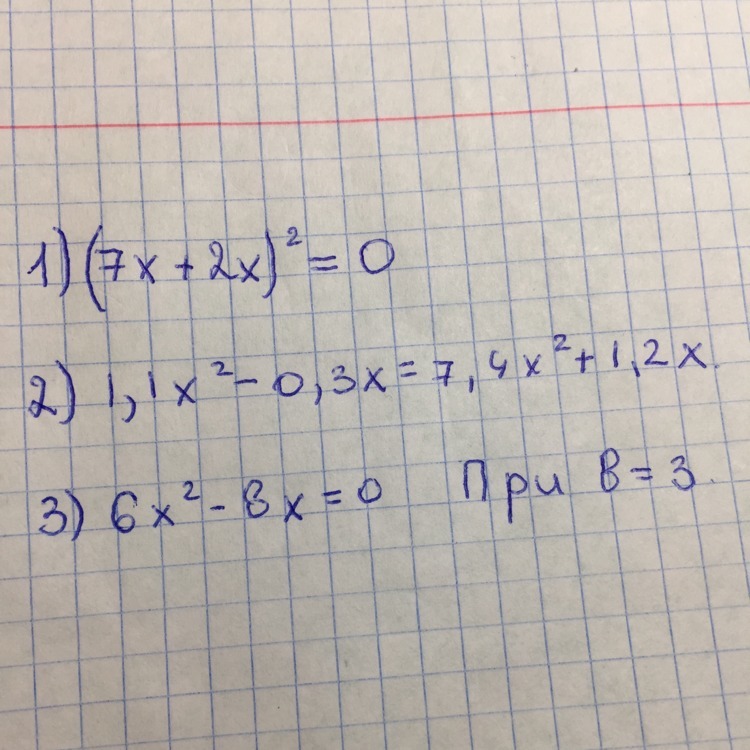 1) (7x + 2x)² = 0
2) 1,1x² - 0,3x = 7,4x² + 1,2x.
3) 6x² - вx = 0 При в = 3.